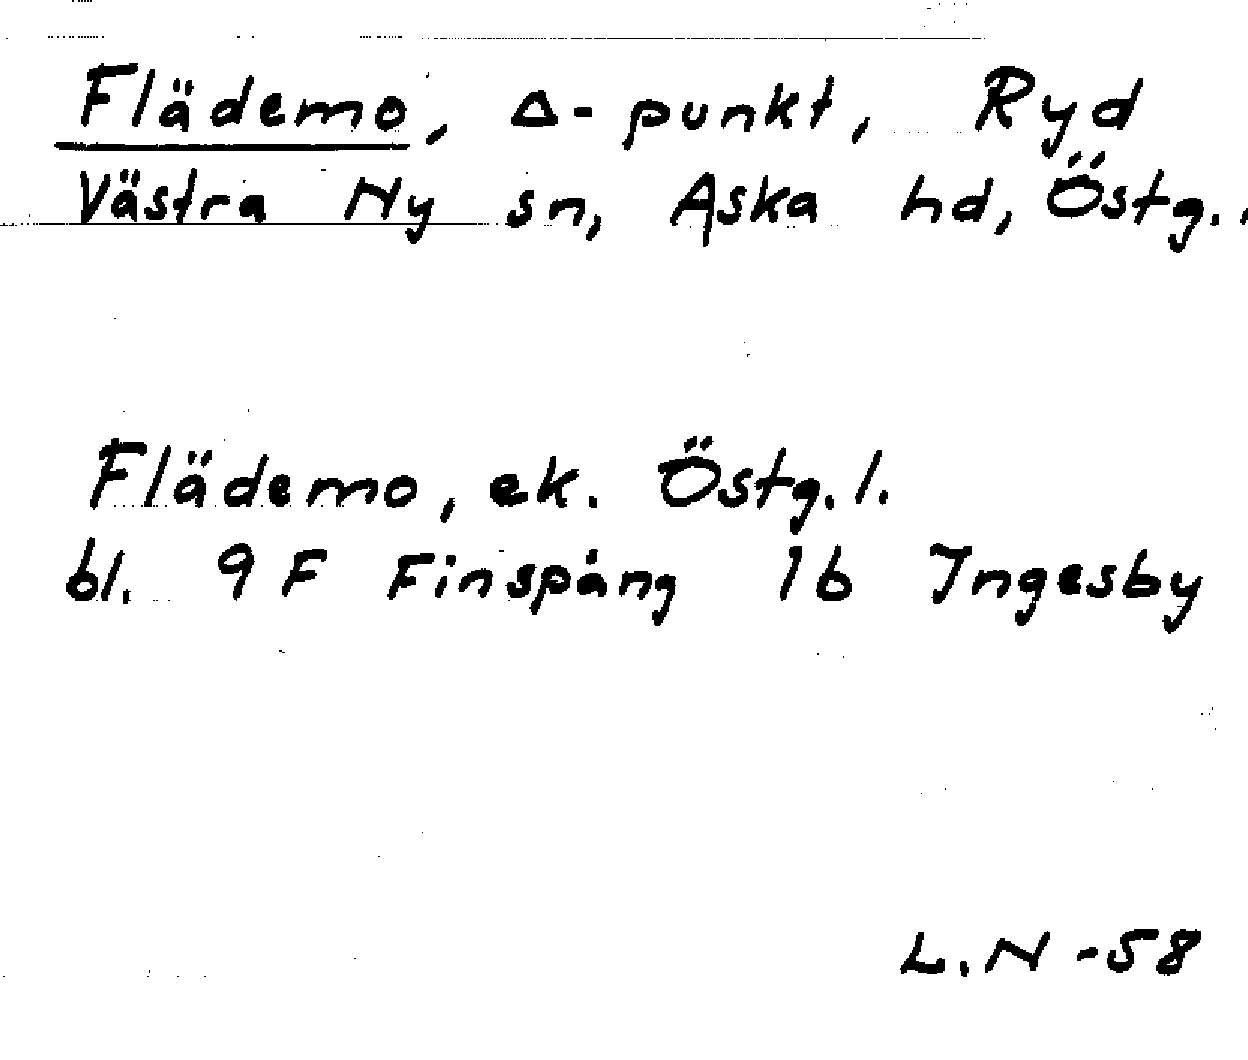 Flädemo, Δ-punkt, Ryd
Västra Ny sn, Aska hd, Östg.
Flädemo, ek. Östg.l.
bl. 9F Finspång 1b Ingesby
L.N -58